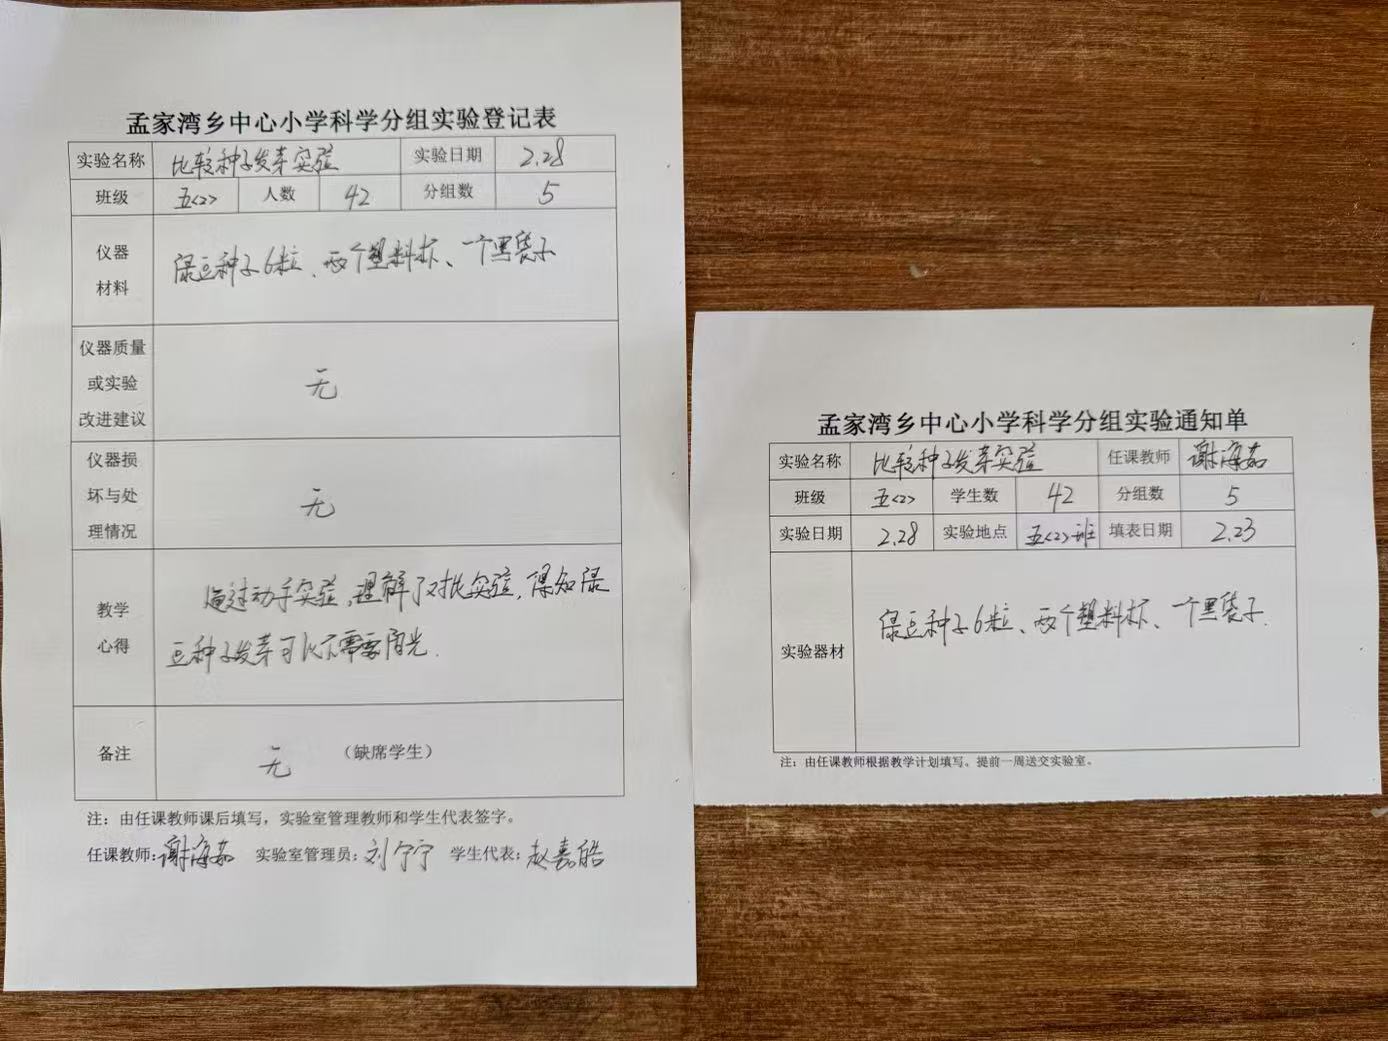 孟家湾乡中心小学科学分组实验登记表
实验名称 比较种子发芽实验 实验日期 2.28
班级 五<2> 人数 42 分组数 5
仪器
材料
绿豆种子6粒、两个塑料杯、一个黑袋子
仪器质量
或实验
改进建议
无
仪器损
坏与处
理情况
无
教学
心得
通过动手实验,理解了对比实验,得知绿
豆种子发芽可以不需要阳光.
备注 无 (缺席学生)
注:由任课教师课后填写,实验室管理教师和学生代表签字。
任课教师:谢海茹 实验室管理员:刘宁宁 学生代表:赵嘉皓
孟家湾乡中心小学科学分组实验通知单
实验名称 比较种子发芽实验 任课教师 谢海茹
班级 五<2> 学生数 42 分组数 5
实验日期 2.28 实验地点 五<2>班 填表日期 2.23
实验器材 绿豆种子6粒、两个塑料杯、一个黑袋子.
注:由任课教师根据教学计划填写。提前一周送交实验室。